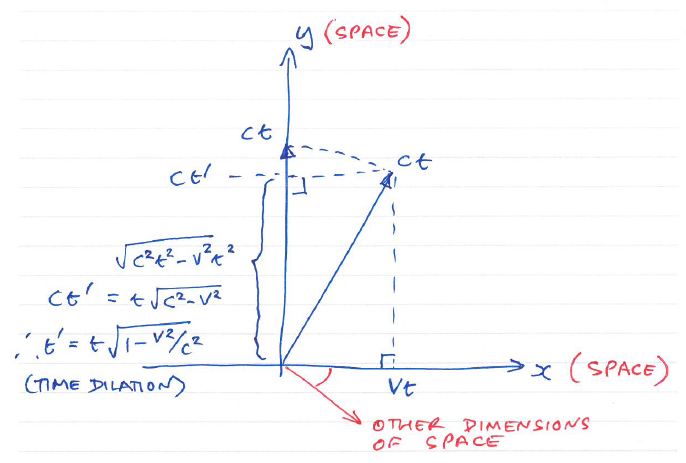 y (SPACE)
ct
ct
ct'
√c²t²-v²t²
ct' = t√c²-v²
∴ t' = t√1-v²/c²
(TIME DILATION)
vt
x (SPACE)
OTHER DIMENSIONS
OF SPACE